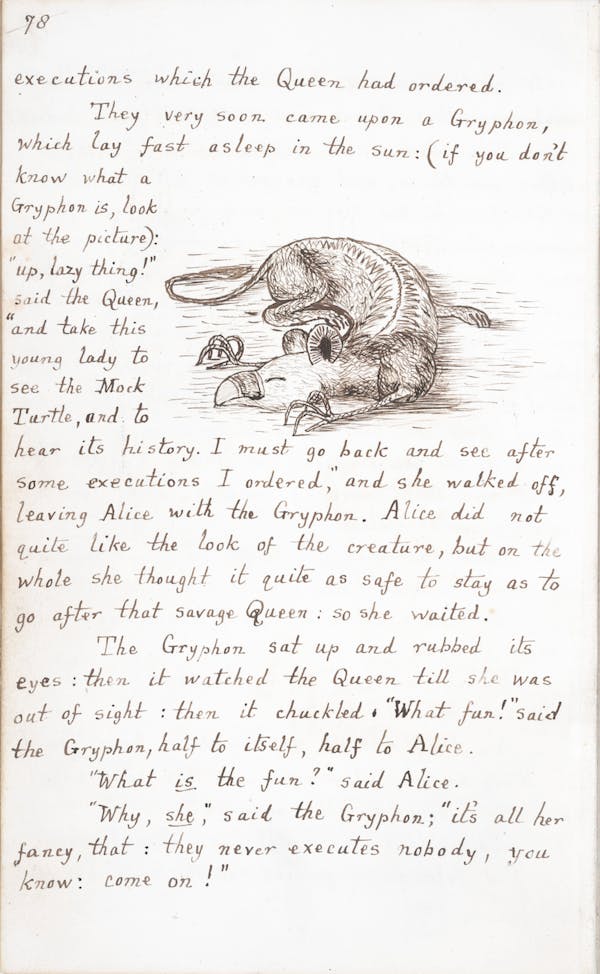 78
executions which the Queen had ordered.
They very soon came upon a Gryphon,
which lay fast asleep in the sun: (if you don't
know what a
Gryphon is, look
at the picture):
"up, lazy thing!"
said the Queen,
"and take this
young lady to
see the Mock
Turtle, and to
hear its history. I must go back and see after
some executions I ordered," and she walked off,
leaving Alice with the Gryphon. Alice did not
quite like the look of the creature, but on the
whole she thought it quite as safe to stay as to
go after that savage Queen: so she waited.
The Gryphon sat up and rubbed its
eyes: then it watched the Queen till she was
out of sight: then it chuckled. "What fun!" said
the Gryphon, half to itself, half to Alice.
"What is the fun?" said Alice.
"Why, she," said the Gryphon; "it's all her
fancy, that: they never executes nobody, you
know: come on!"